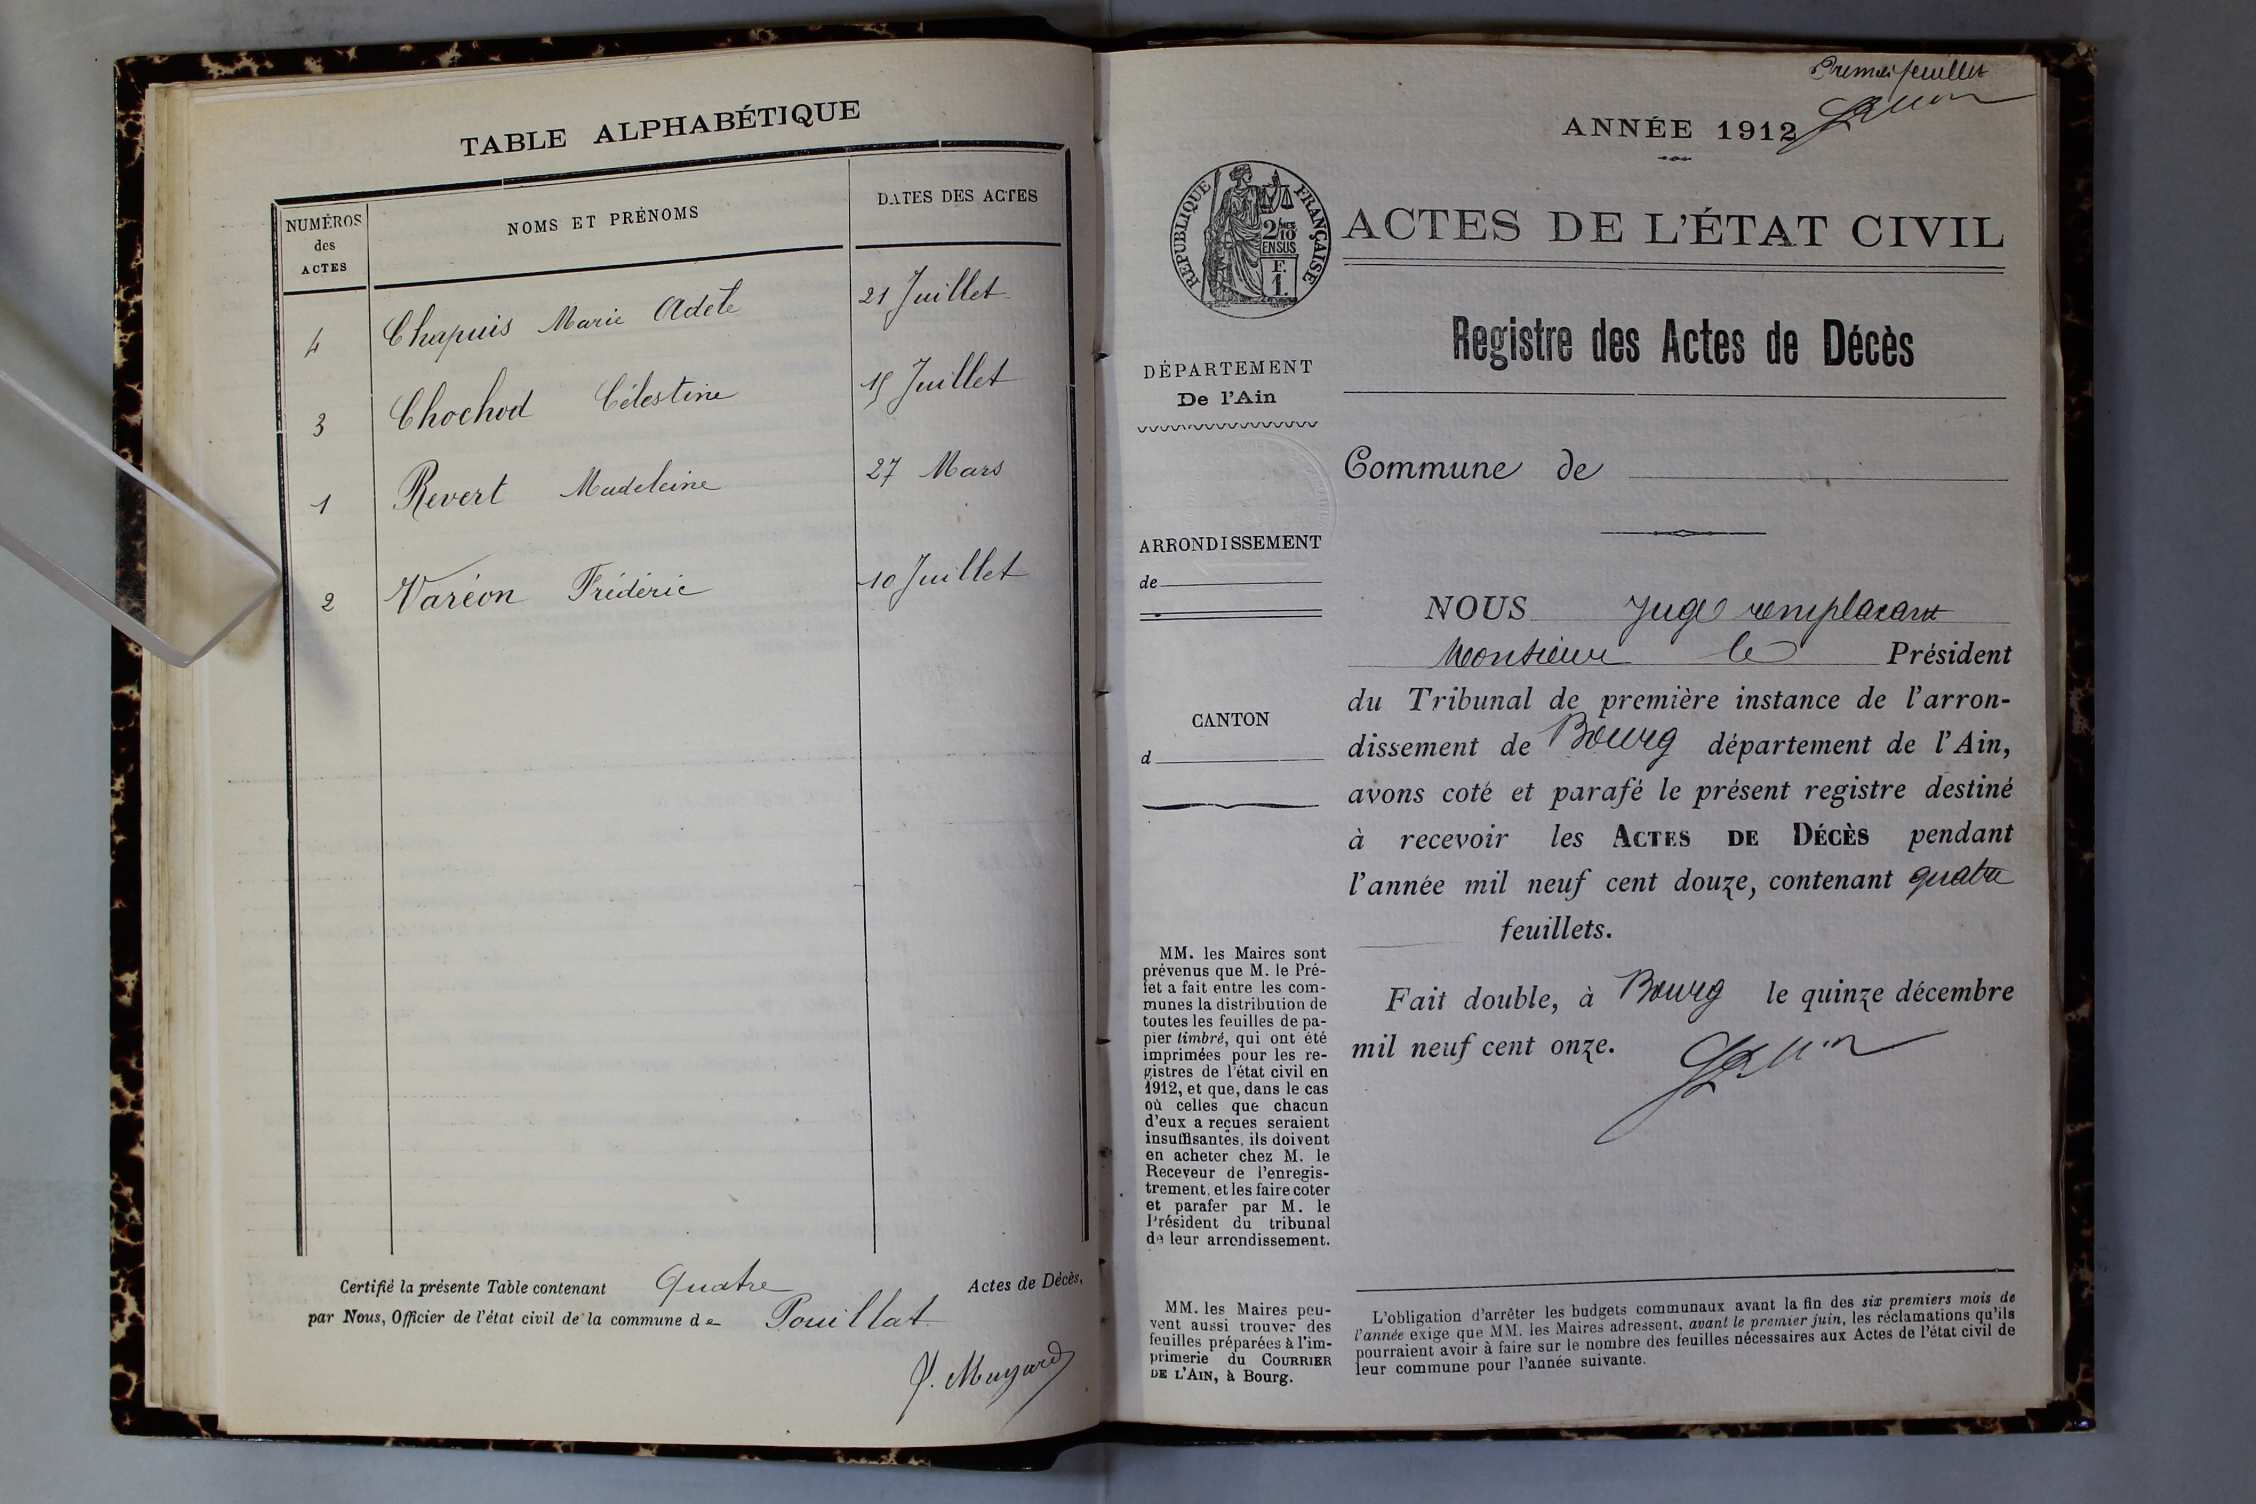 TABLE ALPHABÉTIQUE
NUMÉROS
des
ACTES
NOMS ET PRÉNOMS
DATES DES ACTES
4 Chapuis Marie Adèle 21 Juillet
3 Chochod Célestine 15 Juillet
1 Revert Madeleine 27 Mars
2 Varéon Frédéric 10 Juillet
Certifié la présente Table contenant Quatre Actes de Décès,
par Nous, Officier de l'état civil de la commune de Pouillat
Premier feuillet
ANNÉE 1912
RÉPUBLIQUE FRANÇAISE
2/10
EN SUS
F.
1.
ACTES DE L'ÉTAT CIVIL
Registre des Actes de Décès
DÉPARTEMENT
De l'Ain
Commune de
ARRONDISSEMENT
de
CANTON
d
NOUS Juge remplaçant
Monsieur le Président
du Tribunal de première instance de l'arron-
dissement de Bourg département de l'Ain,
avons coté et parafé le présent registre destiné
à recevoir les ACTES DE DÉCÈS pendant
l'année mil neuf cent douze, contenant quatre
feuillets.
Fait double, à Bourg le quinze décembre
mil neuf cent onze.
MM. les Maires sont
prévenus que M. le Pré-
fet a fait entre les com-
munes la distribution de
toutes les feuilles de pa-
pier timbré, qui ont été
imprimées pour les re-
gistres de l'état civil en
1912, et que, dans le cas
où celles que chacun
d'eux a reçues seraient
insuffisantes, ils doivent
en acheter chez M. le
Receveur de l'enregis-
trement, et les faire coter
et parafer par M. le
Président du tribunal
de leur arrondissement.
MM. les Maires peu-
vent aussi trouver des
feuilles préparées à l'im-
primerie du COURRIER
DE L'AIN, à Bourg.
L'obligation d'arrêter les budgets communaux avant la fin des six premiers mois de
l'année exige que MM. les Maires adressent, avant le premier juin, les réclamations qu'ils
pourraient avoir à faire sur le nombre des feuilles nécessaires aux Actes de l'état civil de
leur commune pour l'année suivante.